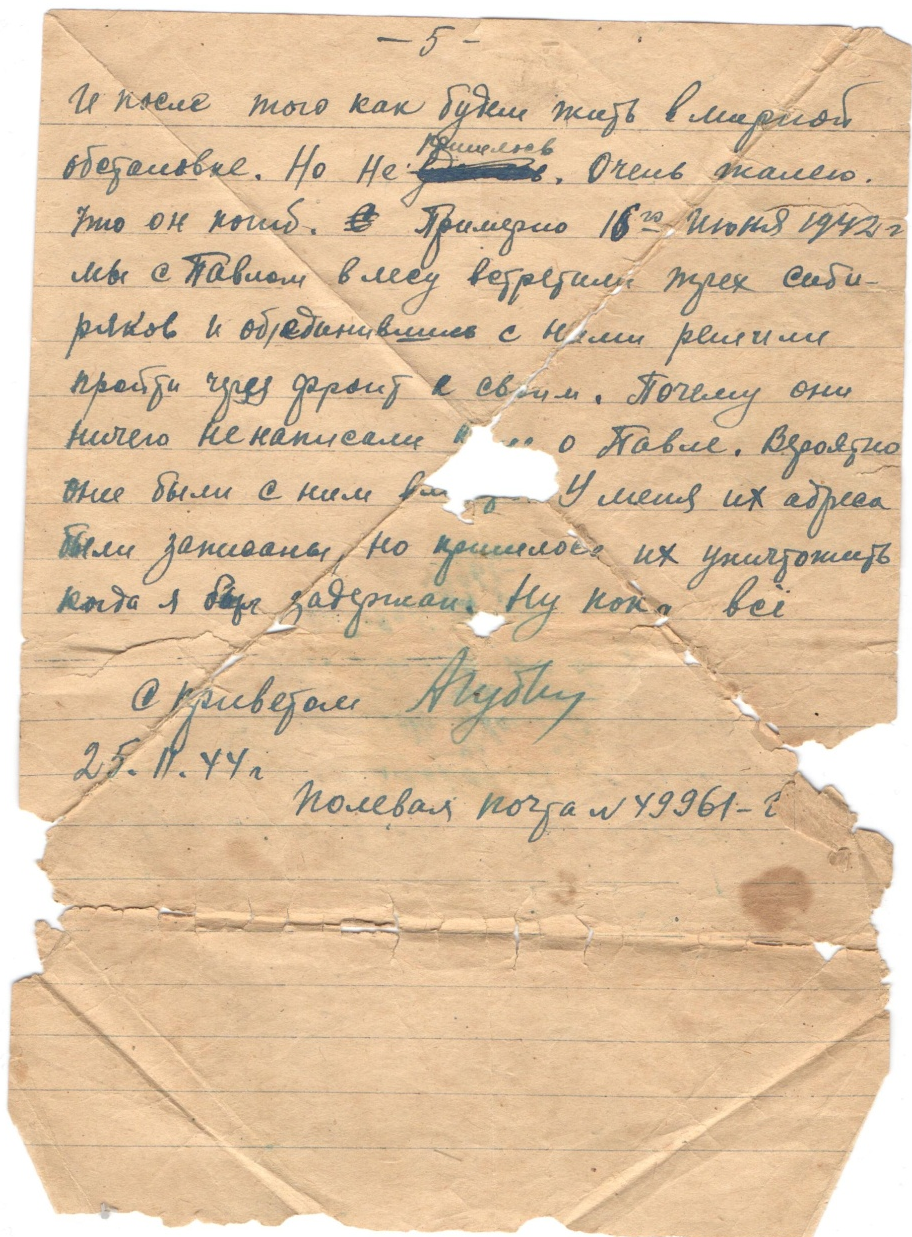 - 5 -
И после того как будем жить в мирной
пришлось
обстановке. Но не. Очень жалею.
что он погиб. Примерно 16го Июня 1942 г
мы с Павлом в лесу встретили трех сиби-
ряков и обједанившись с ними решили
пройти через фронт к своим. Почему они
ничего ненаписали о Павле. Вероятно
они были с ним У меня их адреса
были записаны, но пришлось их уничтожить
когда я был задержан. Ну пока всё
С приветом
25. II. 44 г
Полевая почта № 49961-